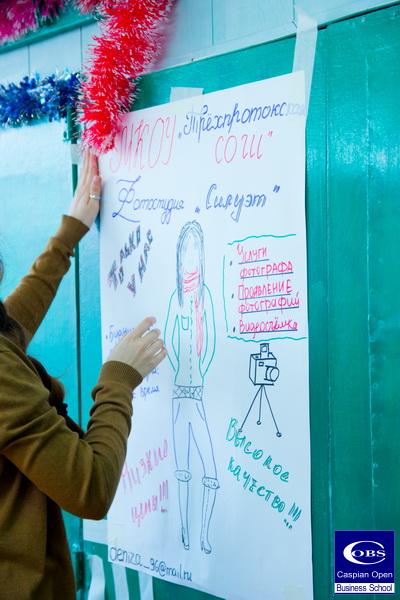 МКОУ „Трёхпротокская
СОШ"
Фотостудия „Силуэт"
Только
у нас
• Услуги
фотографа
• Проявление
фотографий
• Видеосъёмка
время
Низкие
цены!!!
Высокое
качество!!!
deniza_96@mail.ru
COBS
Caspian Open
Business School